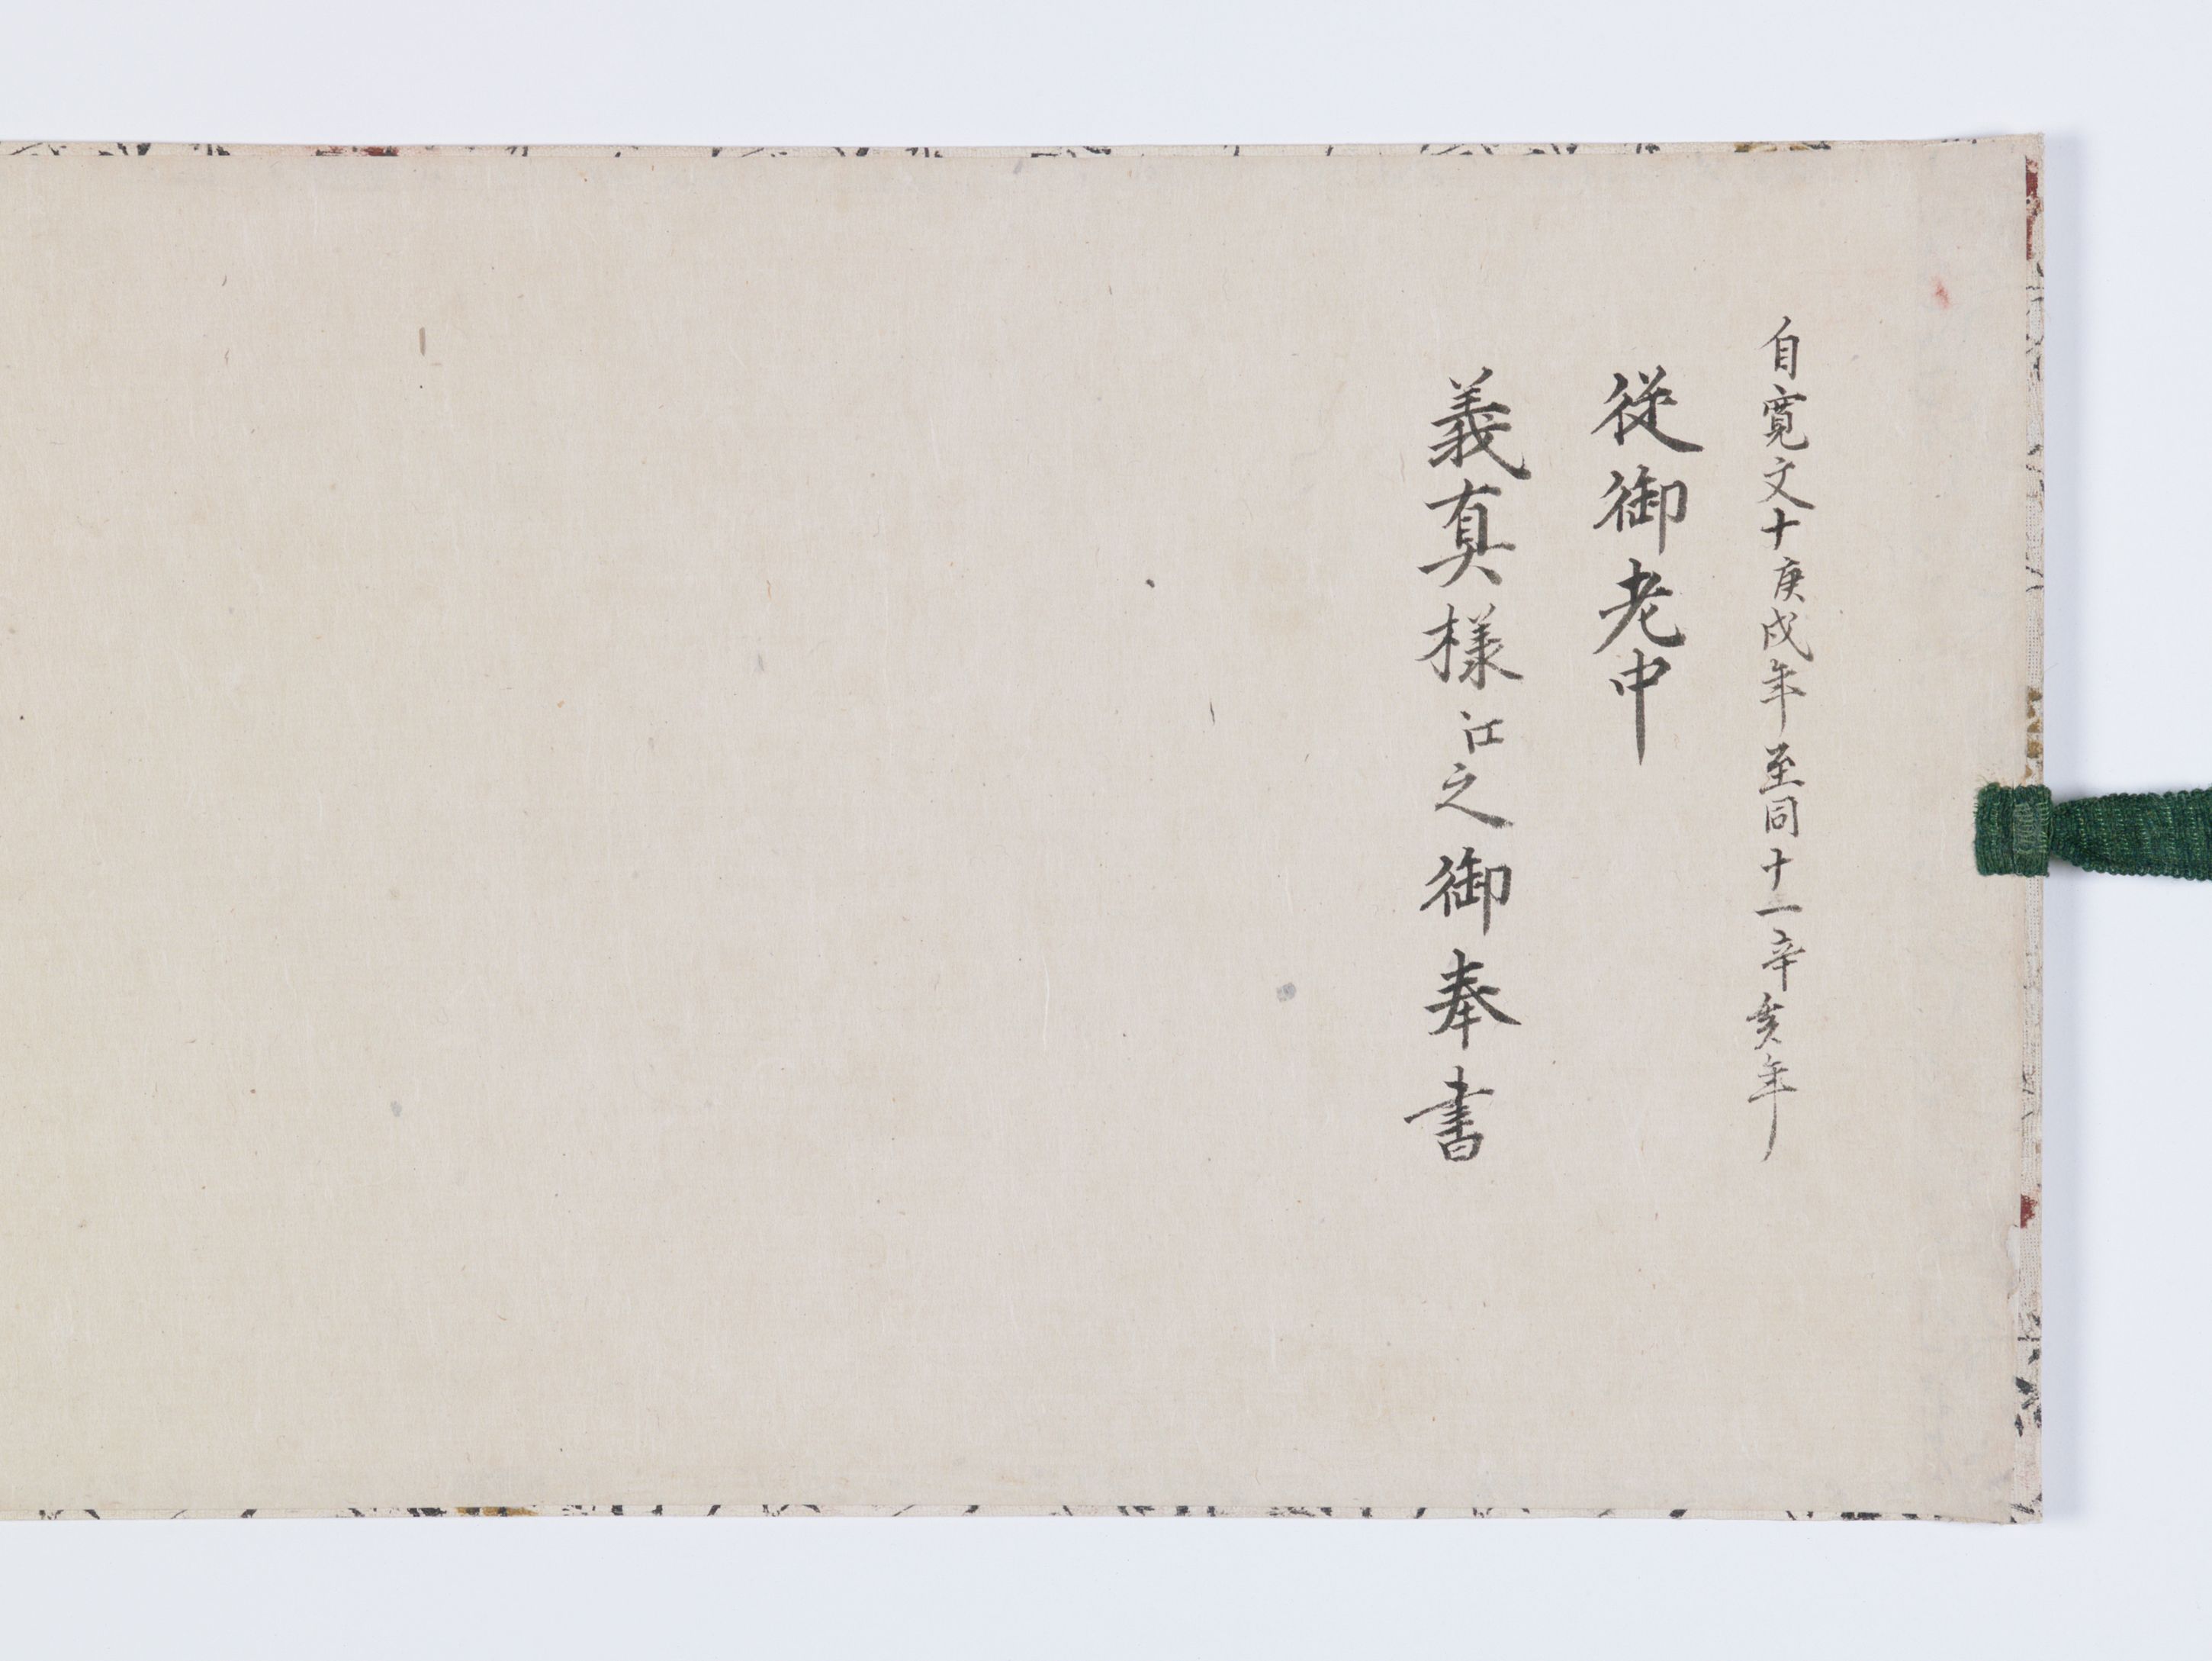 自寛文十庚戌年至同十一辛亥年
従御老中
義真様江之御奉書